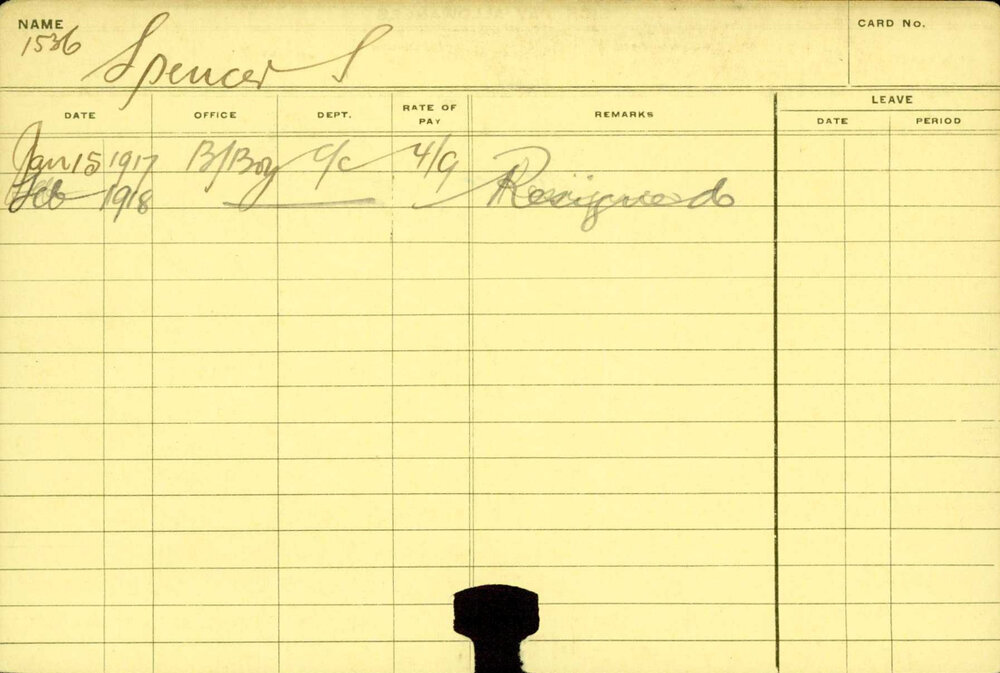 NAME CARD No.
1536 Spencer S
LEAVE
DATE OFFICE DEPT. RATE OF PAY REMARKS DATE PERIOD
Jan 15 1917 B/Boy C/C 4/9
Feb 1918 Resigned